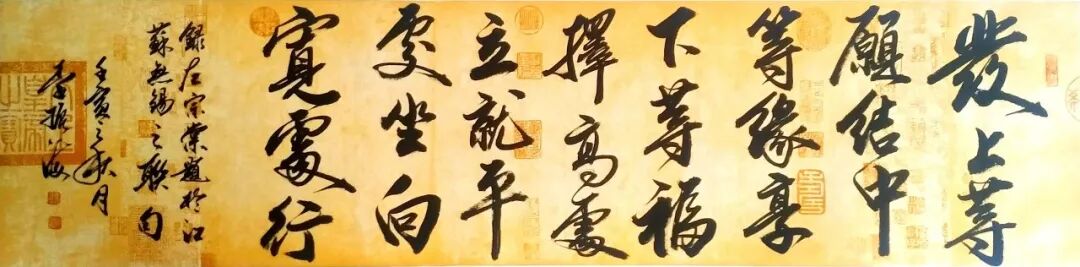 發上等
願結中
等緣享
下等福
擇高處
立就平
處坐向
寬處行
錄左宗棠題於江
蘇無錫之聯句
壬寅之秋月
李振海